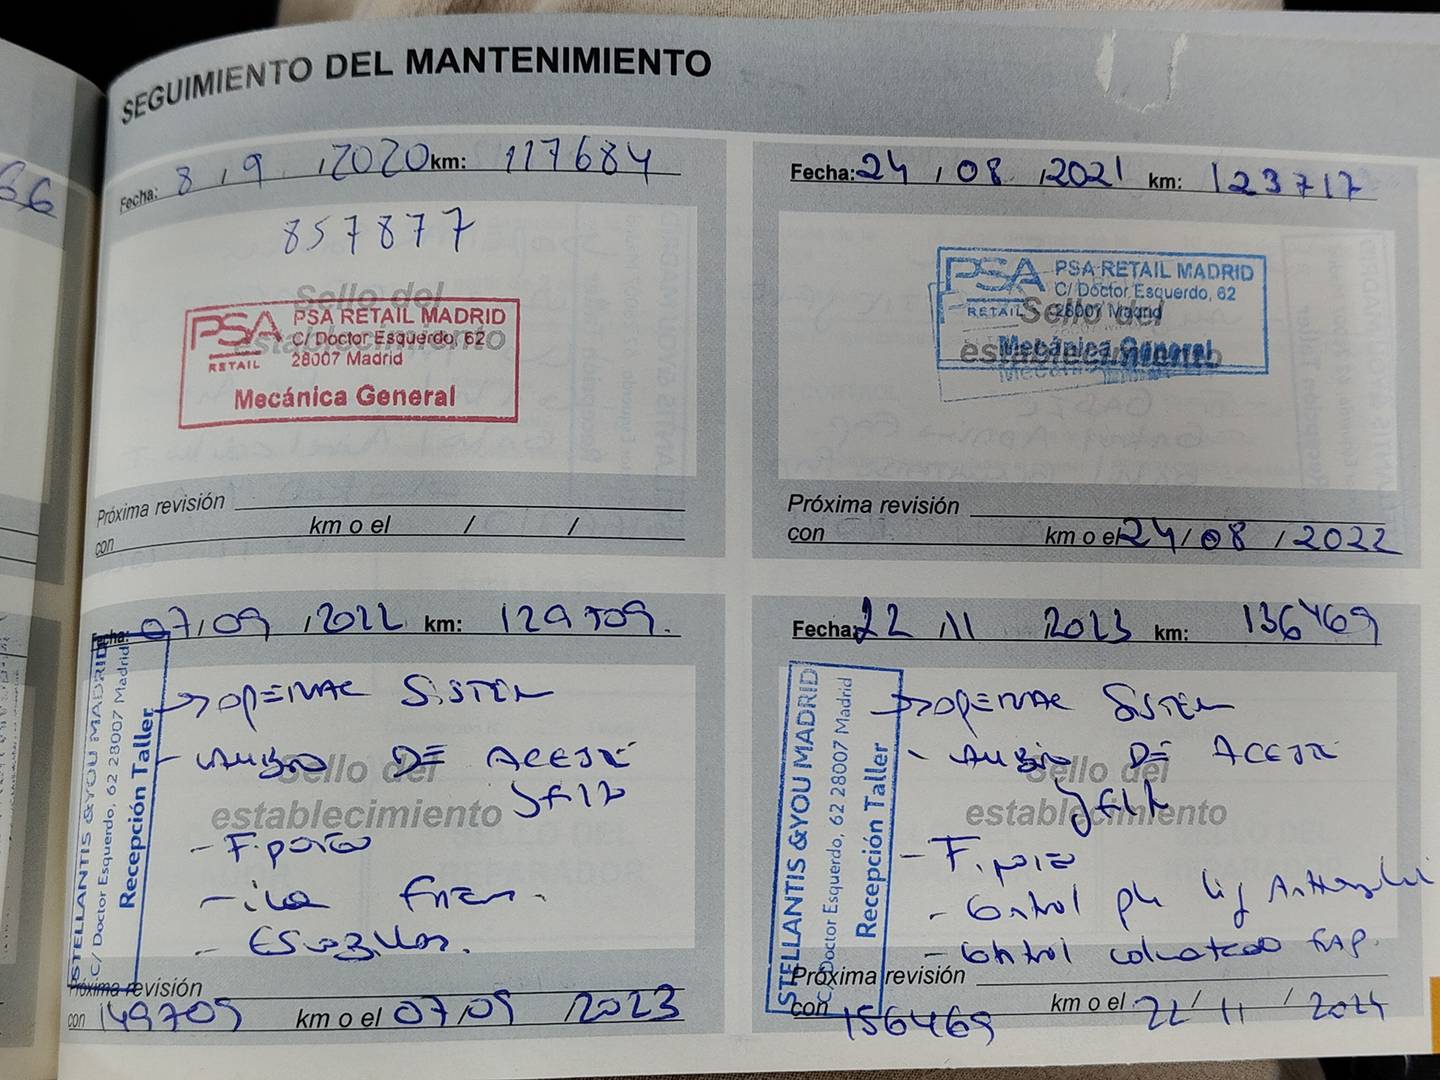 SEGUIMIENTO DEL MANTENIMIENTO
66
Fecha: 8 / 9 / 2020 km: 117684
857877
Sello del
establecimiento
PSA RETAIL
PSA RETAIL MADRID
C/ Doctor Esquerdo, 62
28007 Madrid
Mecánica General
Próxima revisión
con km o el / /
Fecha: 24 / 08 / 2021 km: 123717
PSA RETAIL
PSA RETAIL MADRID
C/ Doctor Esquerdo, 62
28007 Madrid
Sello del
establecimiento
Mecánica General
Próxima revisión
con km o el 24 / 08 / 2022
Fecha: 07 / 09 / 2022 km: 129709.
STELLANTIS &YOU MADRID
C/ Doctor Esquerdo, 62 28007 Madrid
Recepción Taller
Sello del
establecimiento
DE ACEITE
- F. polen
Próxima revisión
con 149709 km o el 07 / 09 / 2023
Fecha: 22 / 11 2023 km: 136469
STELLANTIS &YOU MADRID
C/ Doctor Esquerdo, 62 28007 Madrid
Recepción Taller
Sello del
establecimiento
DE ACEITE
- F. polen
- Control ph liq
- Control colmatado FAP.
Próxima revisión
con 156469 km o el 22 / 11 / 2024